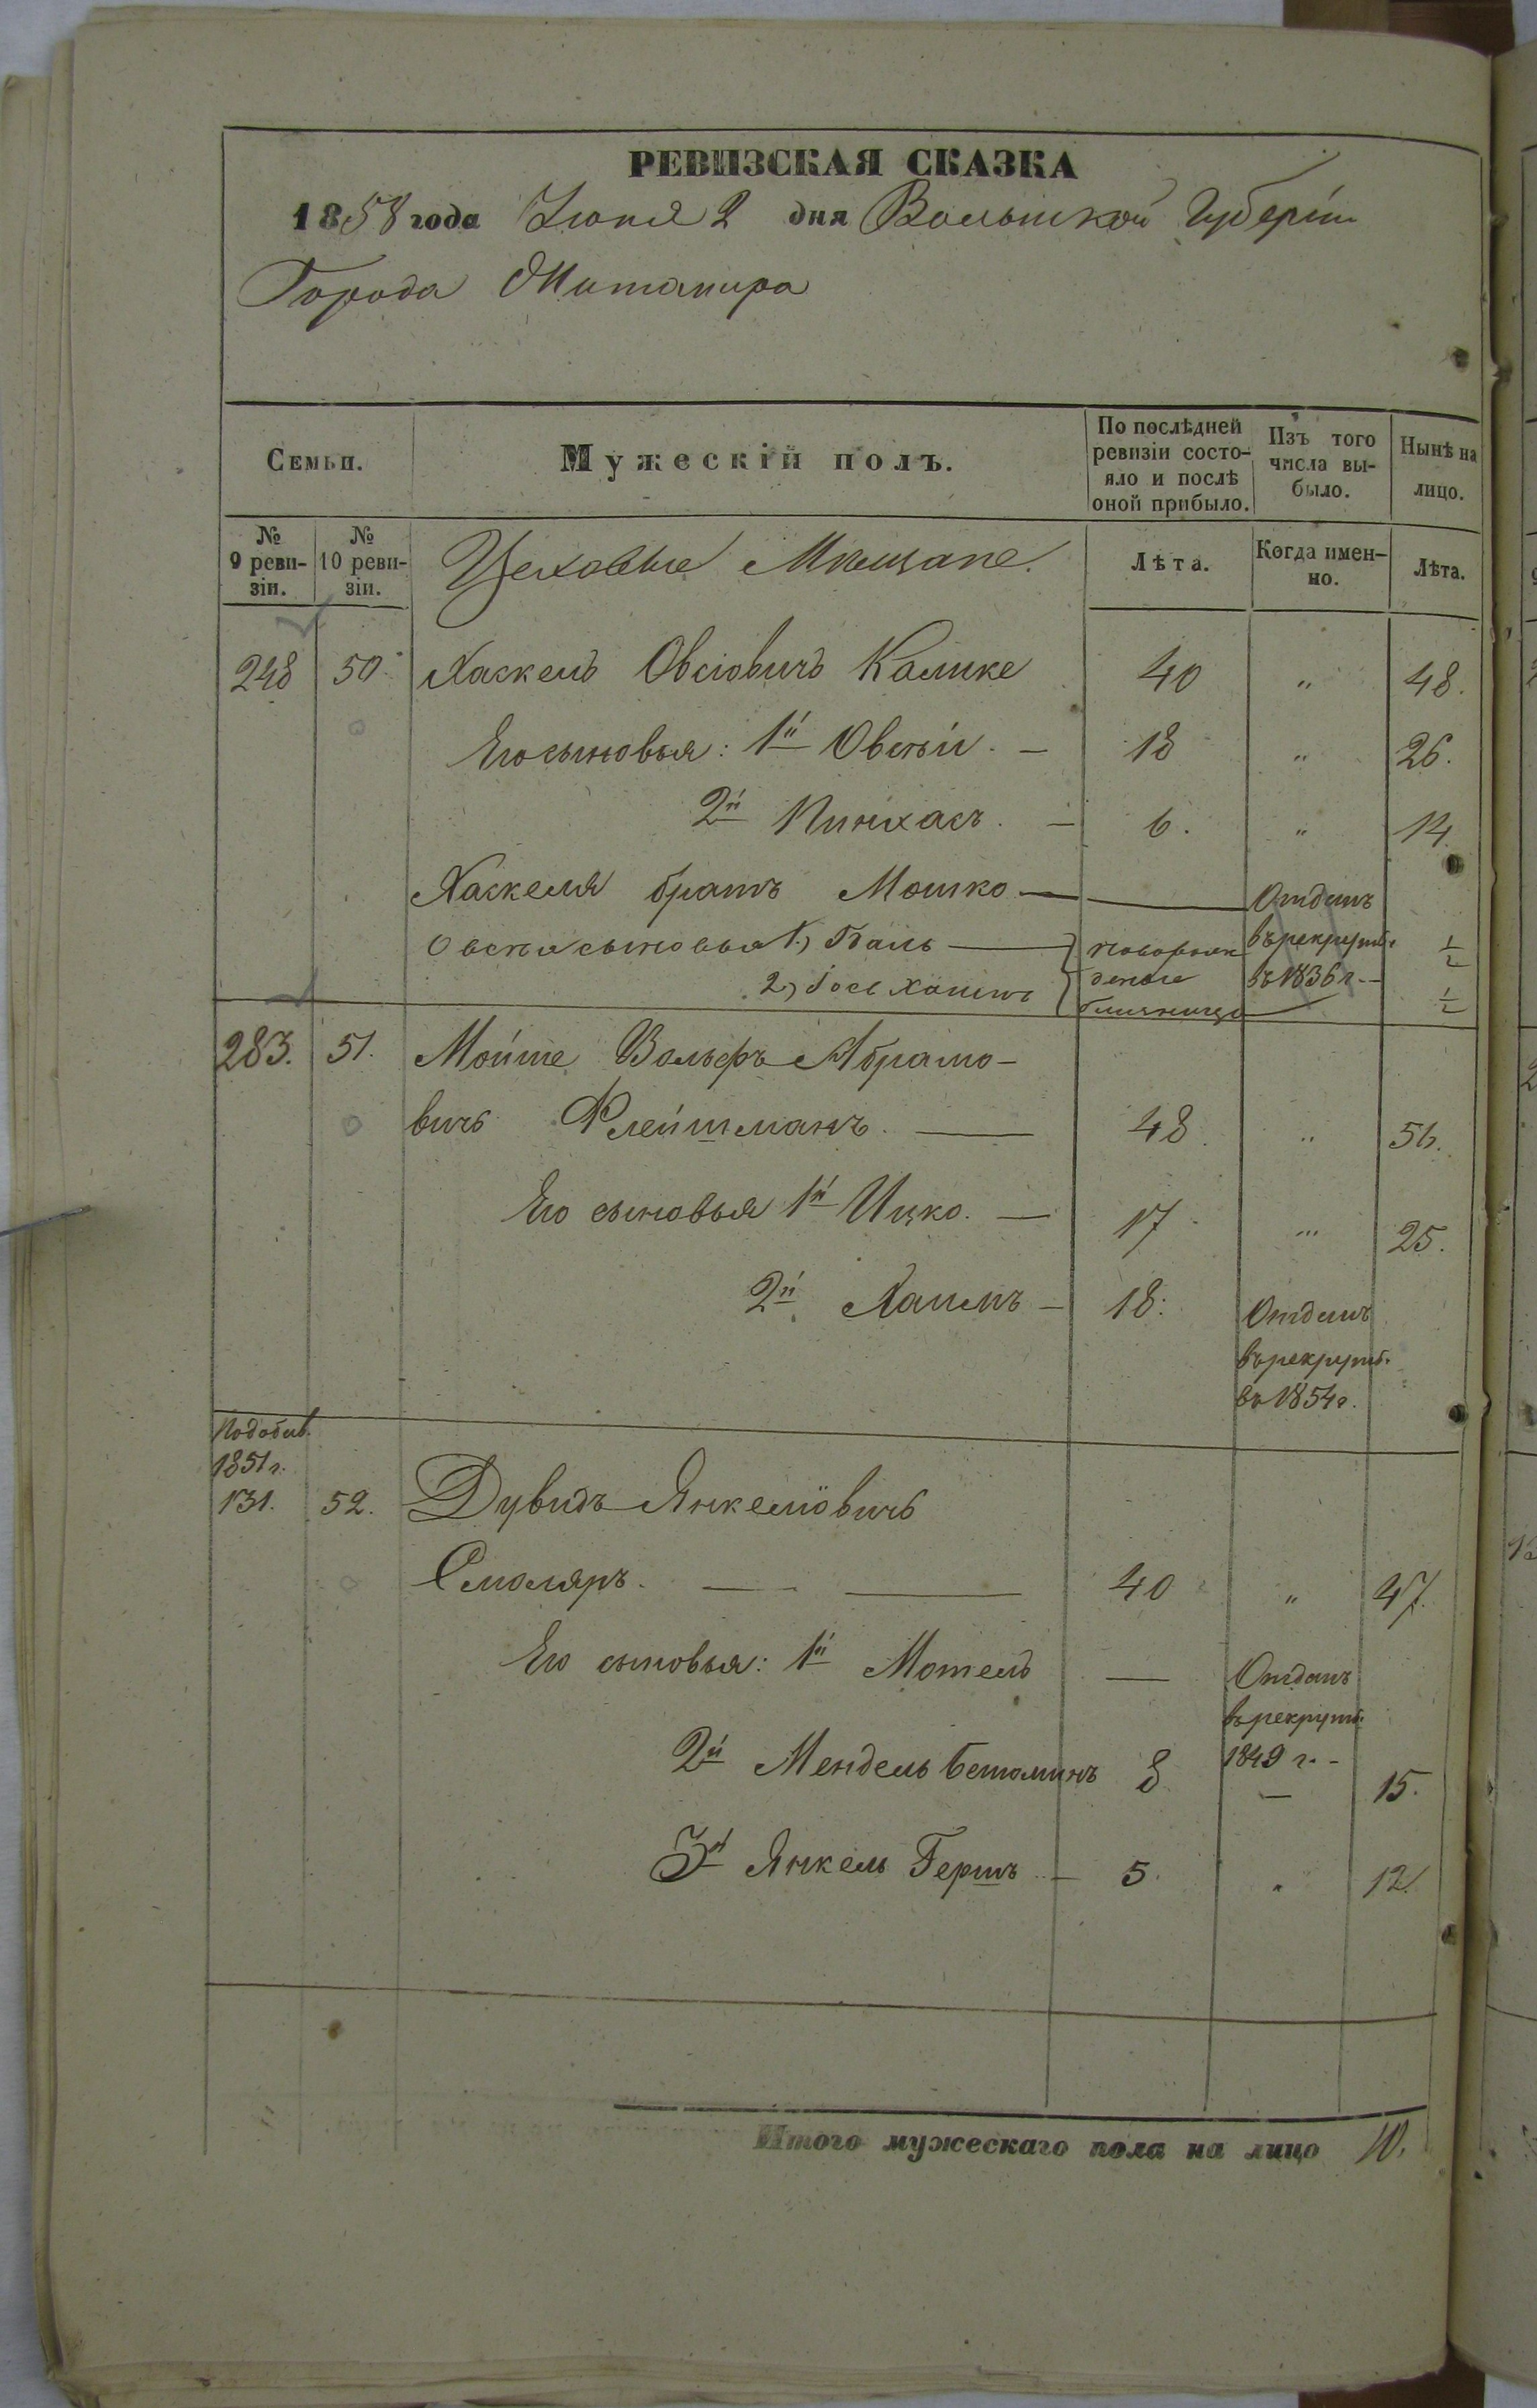 РЕВИЗСКАЯ СКАЗКА
1858 года Іюня 2 дня Волынской Губерніи
Города Житомира
Семьи.
Мужескій полъ.
По послѣдней ревизіи состо-яло и послѣ оной прибыло.
Изъ того числа вы-было.
Нынѣ на лицо.
№ 9 реви-зіи.
№ 10 реви-зіи.
Цеховые Мѣщане.
Лѣта.
Когда имен-но.
Лѣта.
248 50 Хаскель Овсіовичъ Калике 40 " 48.
Его сыновья: 1й Овсѣй. — 18 " 26.
2й Пинхасъ. — 6. " 14.
Хаскеля братъ Мошко — — Отданъ
въ рекруты
въ 1836 г.—
Овсѣя сыновья 1) — новорож 1/2
2) Хаимъ деные 1/2
близнецы
283. 51. Мойше Вольфъ Абрамо-
вичъ Флейшманъ. — 48. " 56.
Его сыновья 1й Ицко. — 17 " 25.
2й Хаимъ — 18. Отданъ
въ рекруты.
въ 1854 г.
1851 г.
131. 52. Дувидъ Янкеліовичъ
Смоляръ. — — 40 " 47.
Его сыновья: 1й Мотель — Отданъ
въ рекруты.
1849 г.-
2й Мендель Беніоминъ 8 — 15.
3й Янкель Гершъ — 5. " 12.
Итого мужескаго пола на лицо 10.